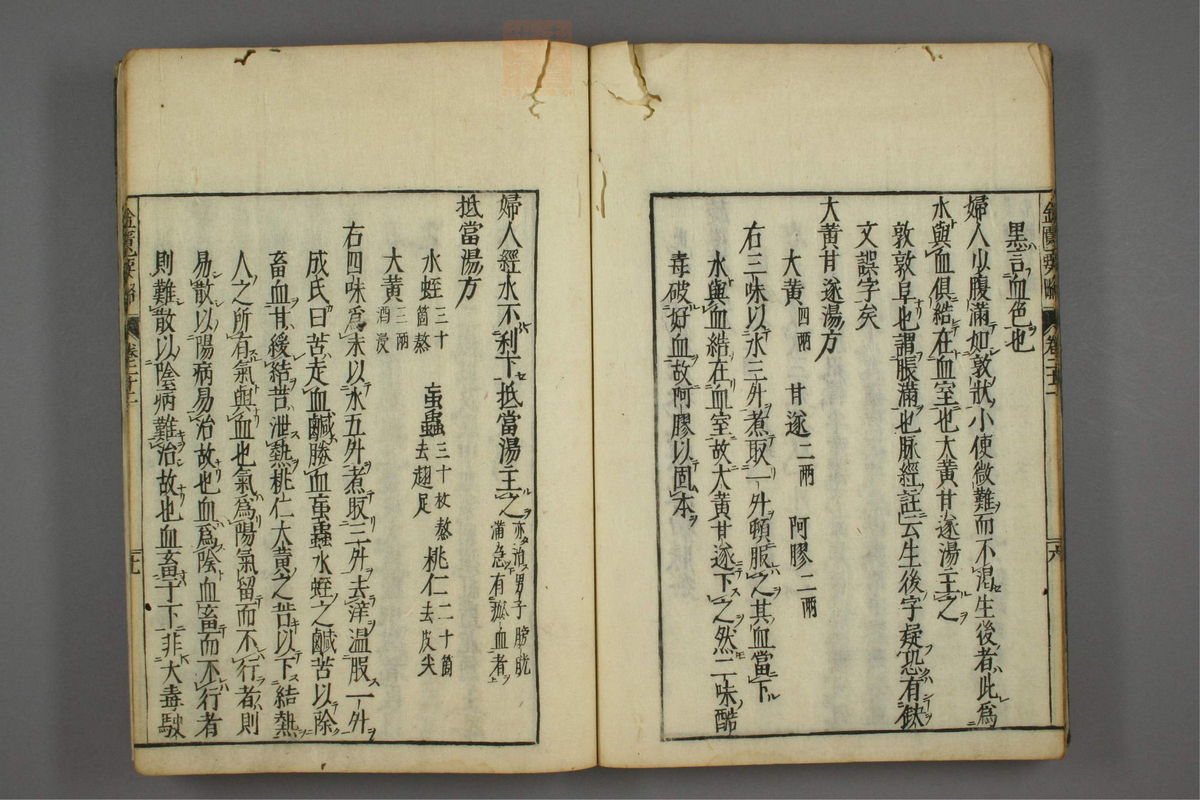 黒言血色也
婦人少腹滿如敦狀小使微難而不渇生後者此爲
水與血俱結在血室也大黄甘遂湯主之
敦敦阜也謂脹滿也脉經註云生後字疑恐有鈌
文誤字矣
大黄甘遂湯方
大黄四兩 甘遂二兩 阿膠二兩
右三味以水三升煮取一升頓服之其血當下
水與血結在血室故大黄甘遂下之然二味酷
毒破好血故阿膠以固本
金匱要略 卷二十二 十六
婦人經水不利下抵當湯主之亦治男子膀胱滿急有瘀血者
抵當湯方
水蛭三十箇熬 䖟蟲三十枚熬去翅足 桃仁二十箇去皮尖
大黄三兩酒浸
右四味爲末以水五升煮取三升去滓温服一升
成氏曰苦走血鹹勝血䖟蟲水蛭之鹹苦以除
畜血甘緩結苦泄熱桃仁大黄之苦以下結熱
人之所有氣與血也氣爲陽氣留而不行者則
易散以陽病易治故也血爲陰血畜而不行者
則難散以陰病難治故也血畜于下非大毒駛
金匱要略 卷二十二 十七